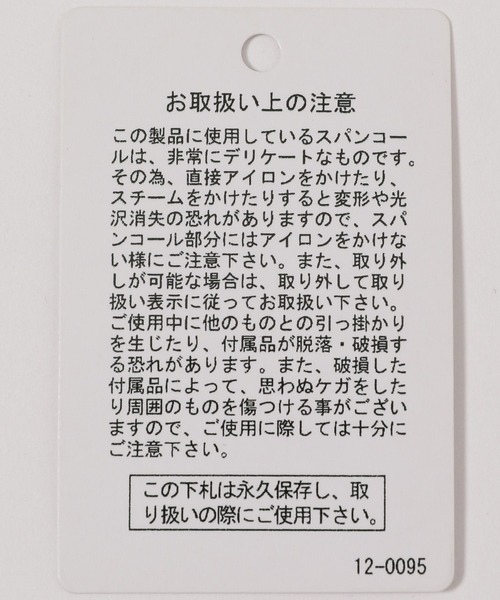 お取扱い上の注意
この製品に使用しているスパンコー
ルは、非常にデリケートなものです。
その為、直接アイロンをかけたり、
スチームをかけたりすると変形や光
沢消失の恐れがありますので、スパ
ンコール部分にはアイロンをかけな
い様にご注意下さい。また、取り外
しが可能な場合は、取り外して取り
扱い表示に従ってお取扱い下さい。
ご使用中に他のものとの引っ掛かり
を生じたり、付属品が脱落・破損す
る恐れがあります。また、破損した
付属品によって、思わぬケガをした
り周囲のものを傷つける事がござい
ますので、ご使用に際しては十分に
ご注意下さい。
この下札は永久保存し、取
り扱いの際にご使用下さい。
12-0095